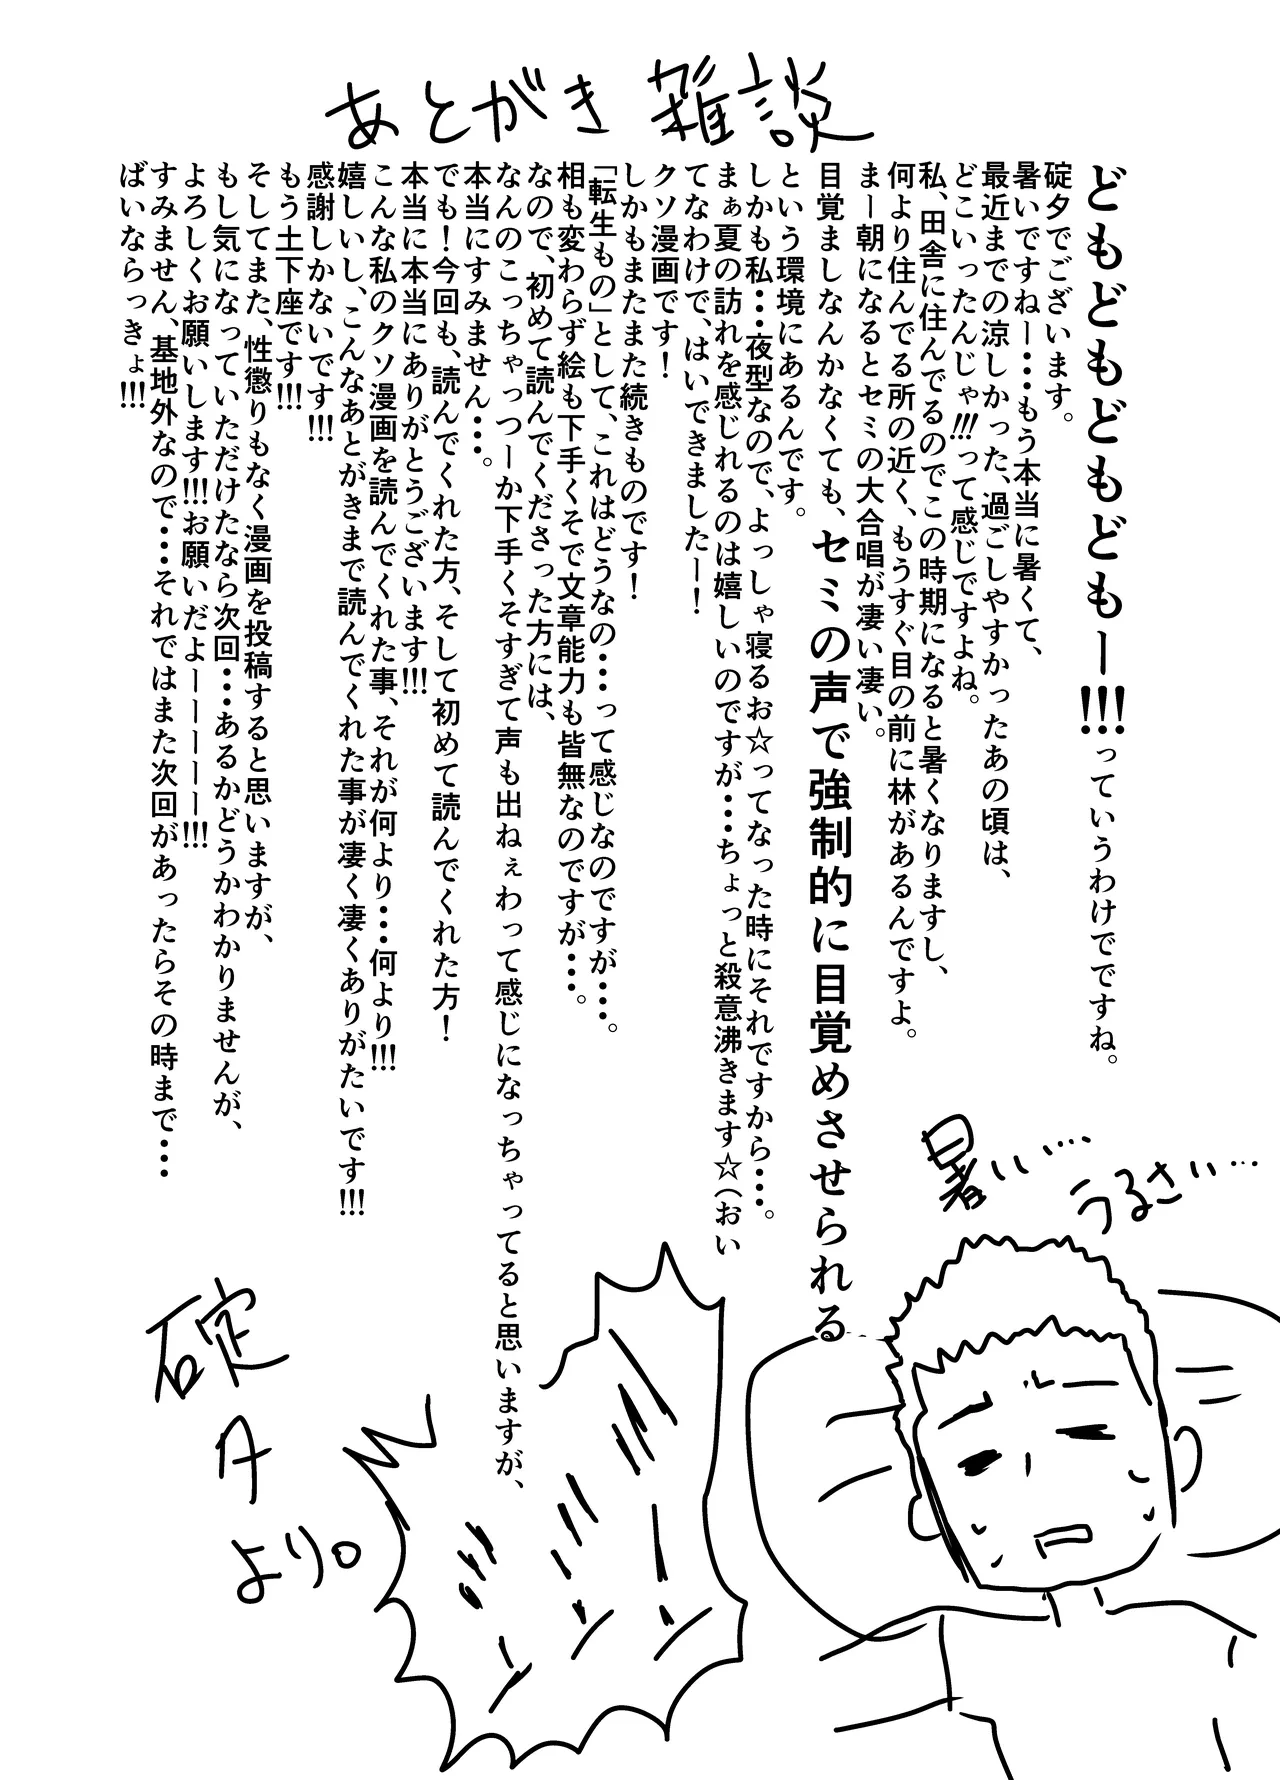 あとがき 雑談
どもどもどもどもー!!!っていうわけでですね。
碇夕でございます。
暑いですねー・・・もう本当に暑くて、
最近までの涼しかった、過ごしやすかったあの頃は、
どこいったんじゃ!!!って感じですよね。
私、田舎に住んでるのでこの時期になると暑くなりますし、
何より住んでる所の近く、もうすぐ目の前に林があるんですよ。
まー朝になるとセミの大合唱が凄い凄い。
目覚ましなんかなくても、セミの声で強制的に目覚めさせられる
という環境にあるんです。
しかも私・・・夜型なので、よっしゃ寝るお☆ってなった時にそれですから・・・。
まぁ夏の訪れを感じれるのは嬉しいのですが・・・ちょっと殺意沸きます☆(おい
てなわけで、はいできましたー!
クソ漫画です!
しかもまたまた続きものです!
「転生もの」として、これはどうなの・・・って感じなのですが・・・。
相も変わらず絵も下手くそで文章能力も皆無なのですが・・・。
なので、初めて読んでくださった方には、
なんのこっちゃっつーか下手くそすぎて声も出ねぇわって感じになっちゃってると思いますが、
本当にすみません・・・。
でも!今回も、読んでくれた方、そして初めて読んでくれた方!
本当に本当にありがとうございます!!!
こんな私のクソ漫画を読んでくれた事、それが何より・・・何より!!!
嬉しいし、こんなあとがきまで読んでくれた事が凄く凄くありがたいです!!!
感謝しかないです!!!
もう土下座です!!!
そしてまた、性懲りもなく漫画を投稿すると思いますが、
もし気になっていただけたなら次回・・・あるかどうかわかりませんが、
よろしくお願いします!!!お願いだよーーーーー!!!
すみません、基地外なので・・・それではまた次回があったらその時まで・・・
ばいならっきょ!!!
暑いい・・・
うるさいい・・・
碇
夕
より。
ミーンミーンミーン